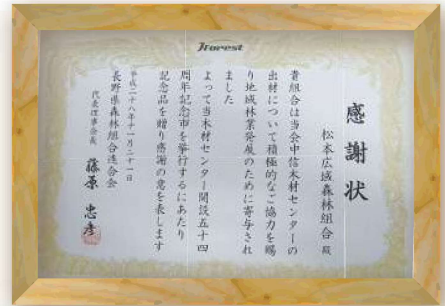 JForest
感謝状
松本広域森林組合 殿
貴組合は当会中信木材センターの
出材について積極的なご協力を賜
り地域林業発展のために寄与され
ました
よって当木材センター開設五十四
周年記念市を挙行するにあたり
記念品を贈り感謝の意を表します
平成二十八年十一月二十一日
長野県森林組合連合会
代表理事会長 藤原 忠彦